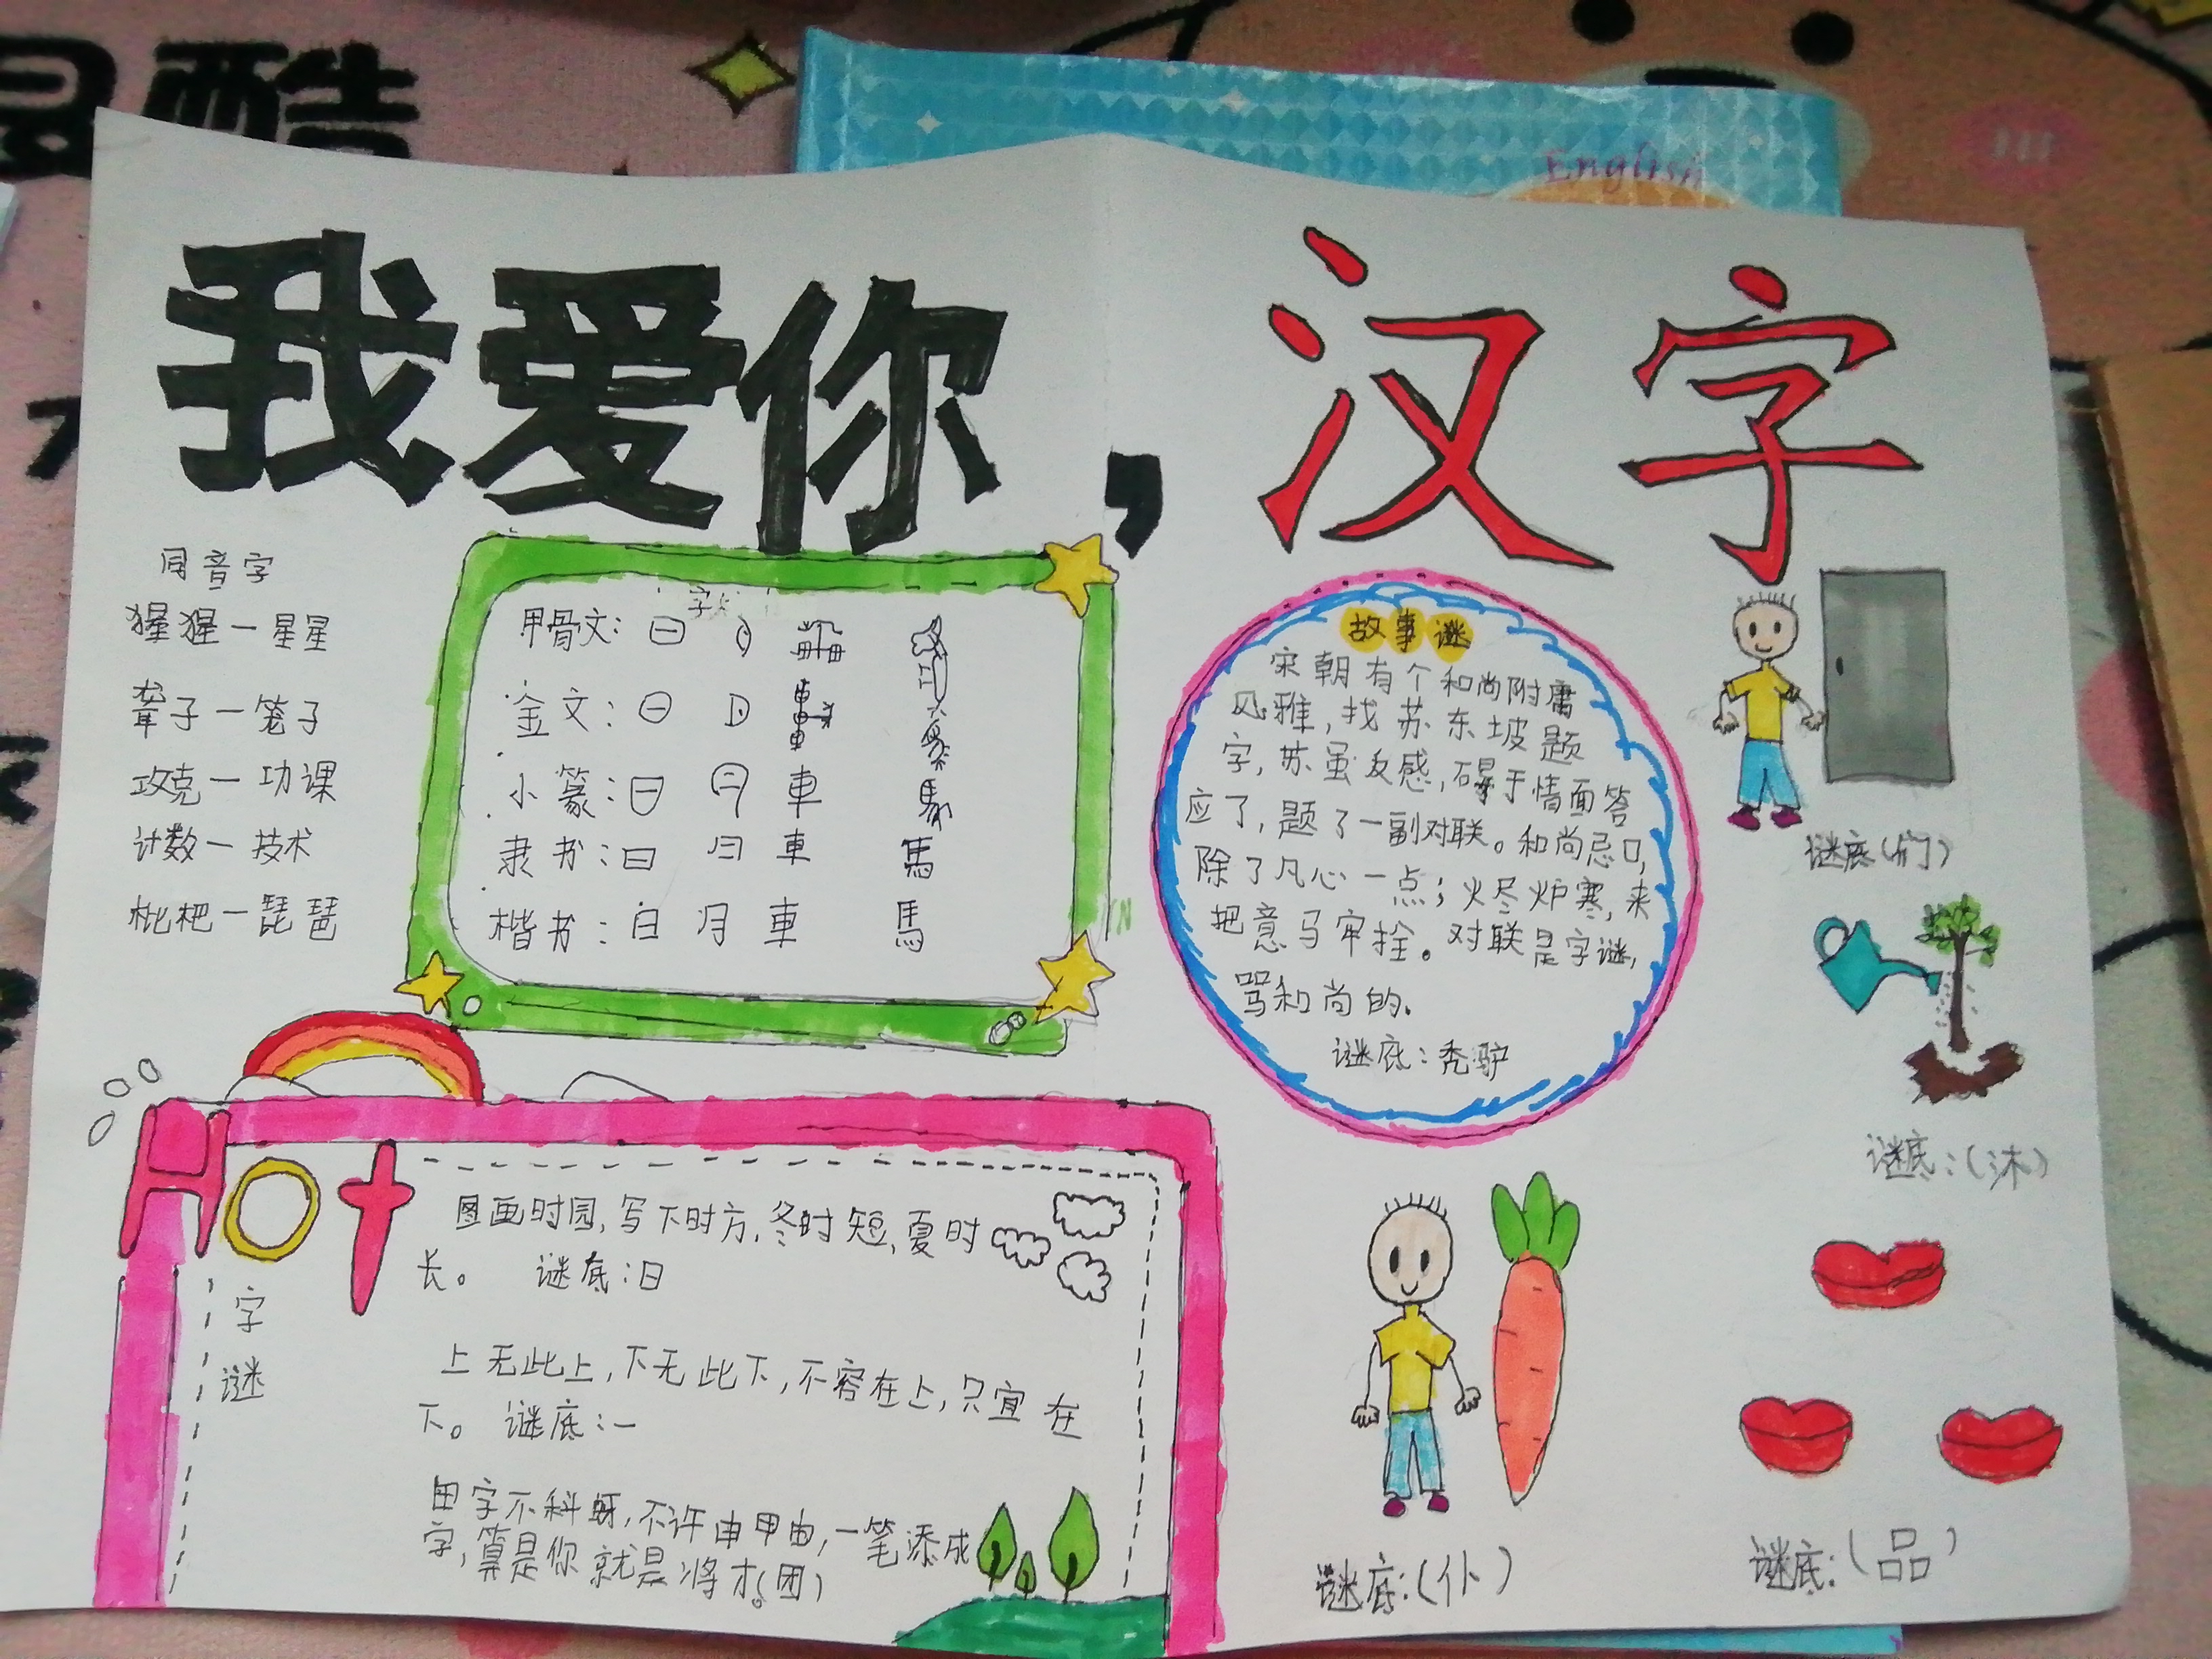 酷
English
我爱你，汉字
同音字
猩猩一星星
聋子一笼子
攻克一功课
计数一技术
枇杷一琵琶
甲骨文：
金文：
小篆：
隶书：曰 月 車 馬
楷书：白 月 車 馬
故事谜
宋朝有个和尚附庸
风雅，找苏东坡题
字，苏虽反感，碍于情面答
应了，题了一副对联。和尚忌口，
除了凡心一点；火尽炉寒，来
把意马牢拴。对联是字谜，
骂和尚的.
谜底：秃驴
谜底(们)
谜底：(沐)
谜底：(仆)
谜底：(品)
Hot
字
谜
图画时园，写下时方，冬时短，夏时
长。 谜底：日
上无此上，下无此下，不容在上，只宜在
下。 谜底：一
田字不 ，不许由甲由，一笔添成
字，算是你就是将才。(团)